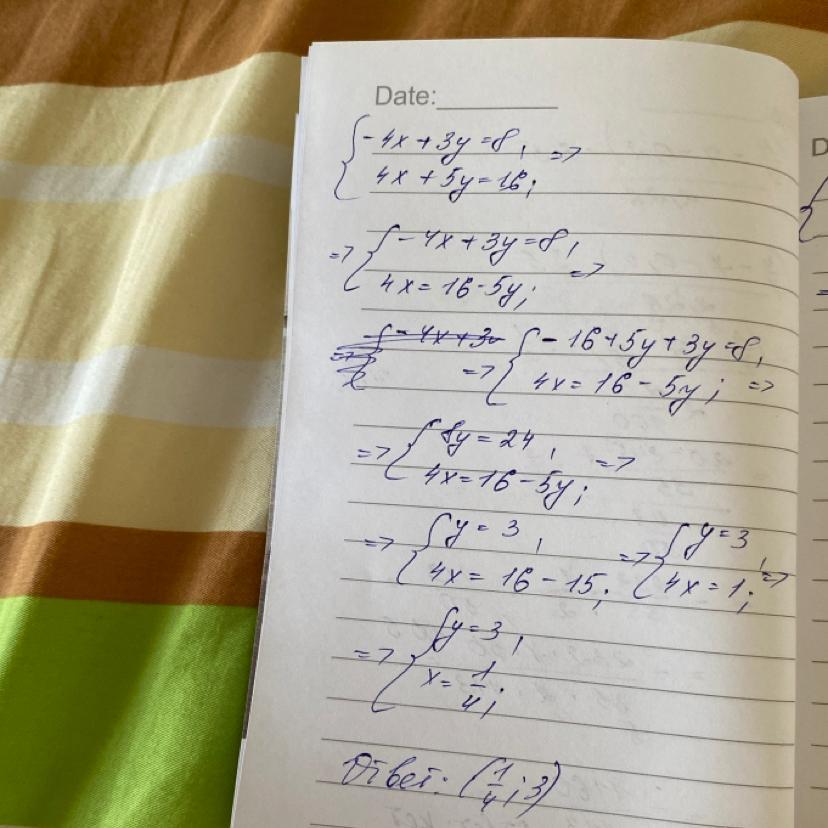 Date:
{-4x + 3y = 8, =>
4x + 5y = 16;
=> {-4x + 3y = 8,
4x = 16 - 5y; =>
=> {-16 + 5y + 3y = 8,
4x = 16 - 5y; =>
=> {8y = 24,
4x = 16 - 5y; =>
=> {y = 3, => {y = 3,
4x = 16 - 15; 4x = 1; =>
=> {y = 3,
x = 1/4;
Ответ: (1/4; 3)